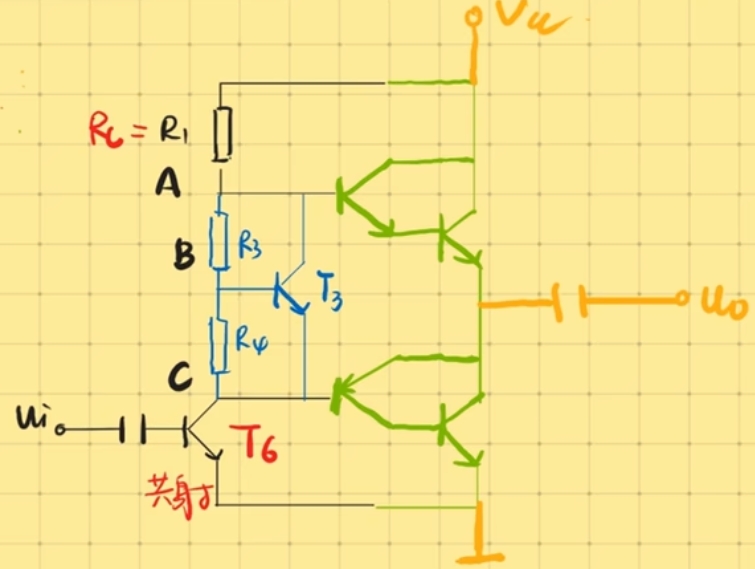 Vcc
Rc = R1
A
B
R3
T3
R4
C
ui
T6
共射
uo